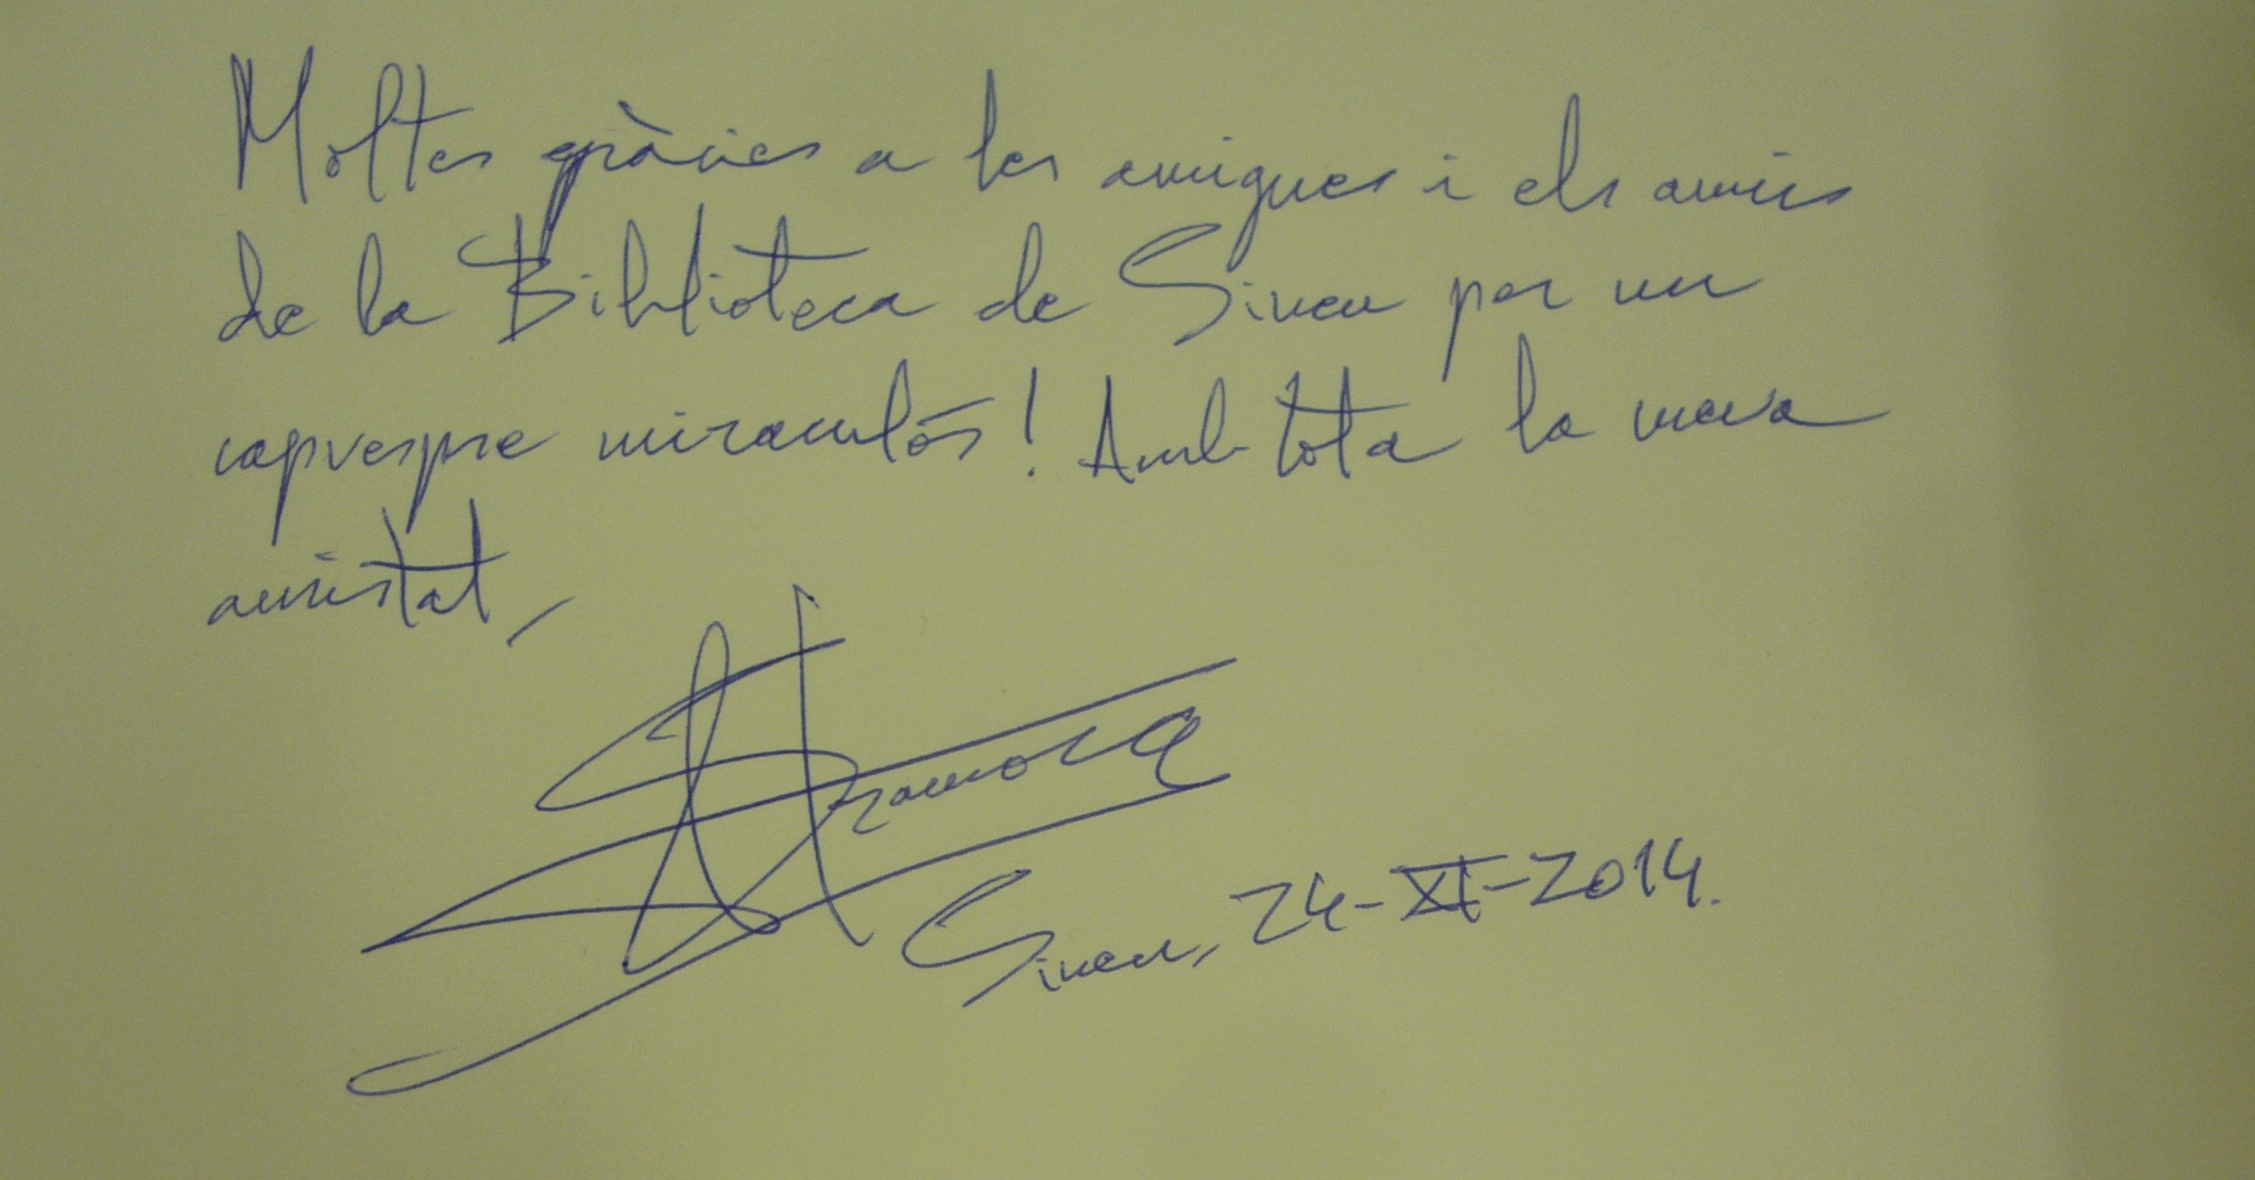 Moltes gràcies a les amigues i els amics
de la Biblioteca de Sineu per un
capvespre miraculós! Amb tota la meva
amistat,
Sineu, 24-XI-2014.